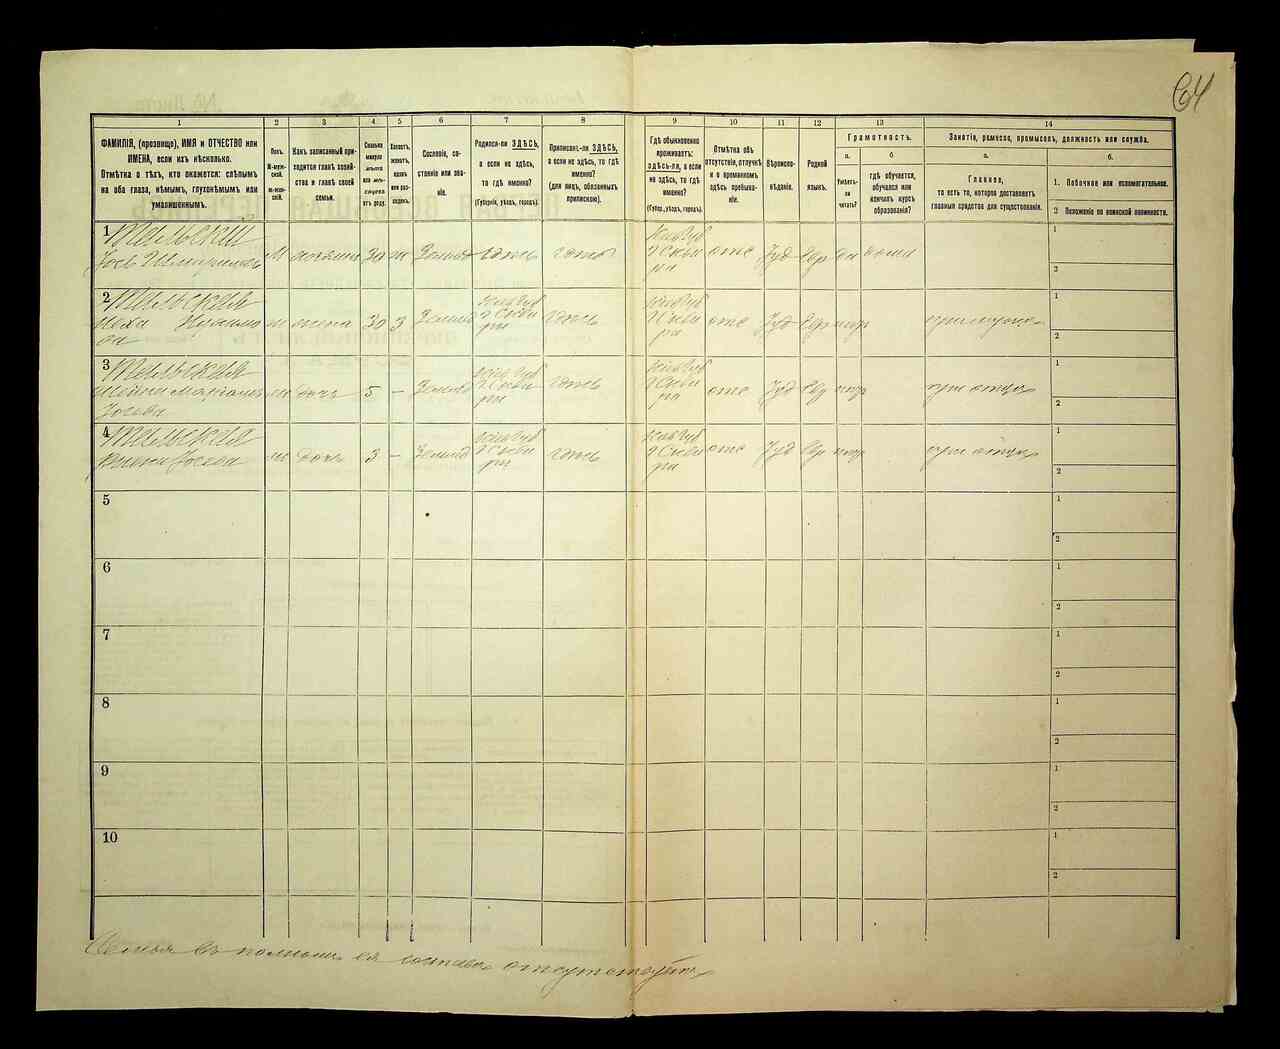 64
1 2 3 4 5 6 7 8 9 10 11 12 13 14
ФАМИЛІЯ, (прозвище), ИМЯ и ОТЧЕСТВО или
ИМЕНА, если ихъ нѣсколько.
Отмѣтка о тѣхъ, кто окажется: слѣпымъ
на оба глаза, нѣмымъ, глухонѣмымъ или
умалишеннымъ.
Полъ.
М-муж-
ской.
ж-жен-
скій.
Какъ записанный при-
ходится главѣ хозяй-
ства и главѣ своей
семьи.
Сколько
минуло
лѣтъ
или мѣ-
сяцевъ
отъ роду.
Холостъ,
женатъ,
вдовъ
или раз-
веденъ.
Сословіе, со-
стояніе или зва-
ніе.
Родился-ли ЗДѢСЬ,
а если не здѣсь,
то гдѣ именно?
(Губернія, уѣздъ, городъ).
Приписанъ-ли ЗДѢСЬ,
а если не здѣсь, то гдѣ
именно?
(для лицъ, обязанныхъ
припиской).
Гдѣ обыкновенно
проживаетъ:
здѣсь-ли, а если
не здѣсь, то гдѣ
именно?
(Губер., уѣздъ, городъ).
Отмѣтка объ
отсутствіи, отлучкѣ
и о временномъ
здѣсь пребыва-
ніи.
Вѣроиспо-
вѣданіе.
Родной
языкъ.
Грамотность.
а.
Умѣетъ-
ли
читать?
б.
гдѣ обучается,
обучался или
кончилъ курсъ
образованія?
Занятіе, ремесло, промыселъ, должность или служба.
а.
Главное,
то есть то, которое доставляетъ
главныя средства для существованія.
б.
1. Побочное или вспомогательное.
2 Положеніе по воинской повинности.
1 Тальскій
М 30 ж здѣсь
Кіев Губ
г Сквы
ра
отс Іуд Евр да дома
1
2
2 Тальская
ж жена 30 з
Кіев Губ
г Сквы
ра
здѣсь
Кіев Губ
г Сквы
ра
отс Іуд Евр
1
2
3 Тальская
Іосева
ж дочь 5 –
Кіев Губ
г Сквы
ра
здѣсь
Кіев Губ
г Сквы
ра
отс Іуд Евр при отцѣ
1
2
4 Тальская
Іосева
ж дочь 3 –
Кіев Губ
г Сквы
ра
здѣсь
Кіев Губ
г Сквы
ра
отс Іуд Евр при отцѣ
1
2
5 1
2
6 1
2
7 1
2
8 1
2
9 1
2
10 1
2
Семья въ полномъ ея составѣ отсутствуетъ